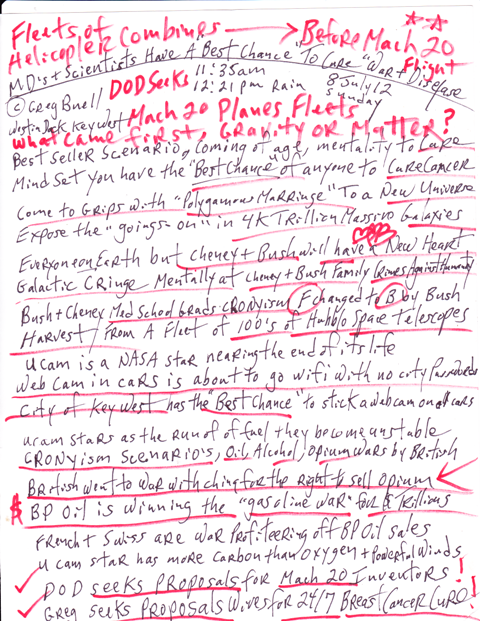 Fleets of
Helicopter Combines → Before Mach 20
Flight
MD's + Scientists Have A "Best Chance" To Cure "War + Disease
© Greg Buell DOD Seeks 11:35am 8 July 12
12:21 pm Rain Sunday
Westin Dock Key West Mach 20 Planes Fleets
What came first, Gravity or Matter?
Best Seller Scenario, Coming of age, mentality to Cure
Mind Set you have the "Best Chance" of anyone to Cure Cancer
Come to Grips with "Polygamous Marriage" To a New Universe
Expose the "goings-on" in 4K Trillion Massive Galaxies
Everyone on Earth but Cheney + Bush will have a New Heart
Galactic Cringe Mentally at Cheney + Bush Family Crimes Against Humanity
Bush + Cheney Med School Grads CRONyism F changed to B by Bush
Harvest, From A Fleet of 100's of Hubble Space Telescopes
U Cam is a NASA star nearing the end of its life
Web Cam in cars is about to go wifi with no city Passwords
City of Key West has the "Best Chance" to stick a webcam on all cars
U cam stars as the run of of fuel they become unstable
CRONyism Scenario's, Oil, Alcohol, Opium wars by British
British went to war with china for the right to sell opium
$ BP Oil is winning the "gasoline war" for $ Trillions
French + Swiss are war profiteering off BP Oil sales
U cam star has more carbon than oxygen + powerful winds
✓ DOD seeks PROPOSALS for Mach 20 Inventors!
✓ Greg seeks PROPOSALS Wives for 24/7 Breast Cancer Cure!